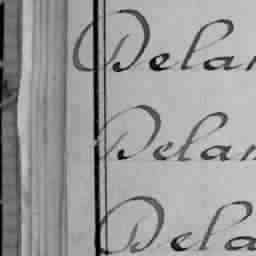 Delan
Delan
Dela